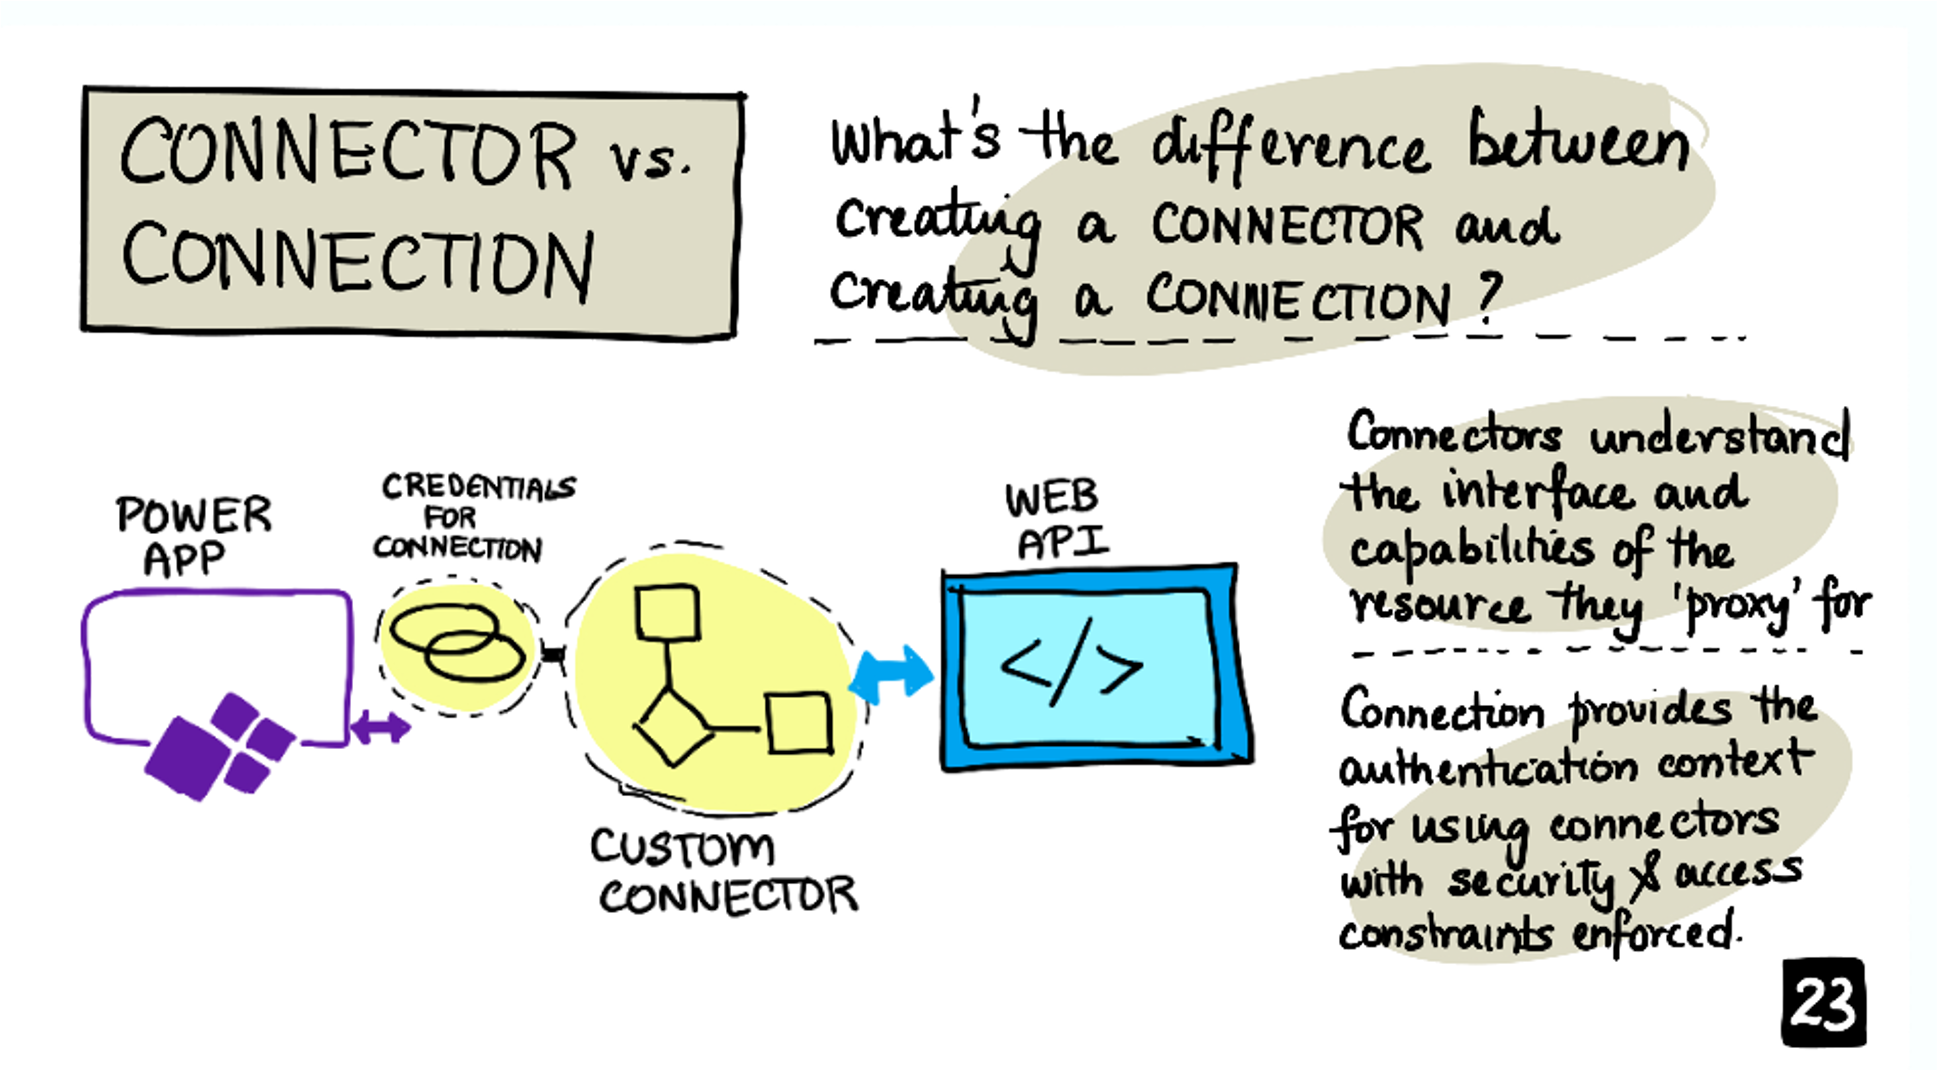 CONNECTOR vs.
CONNECTION
What's the difference between
creating a CONNECTOR and
creating a CONNECTION ?
POWER
APP
CREDENTIALS
FOR
CONNECTION
CUSTOM
CONNECTOR
WEB
API
</>
Connectors understand
the interface and
capabilities of the
resource they 'proxy' for
Connection provides the
authentication context
for using connectors
with security & access
constraints enforced.
23